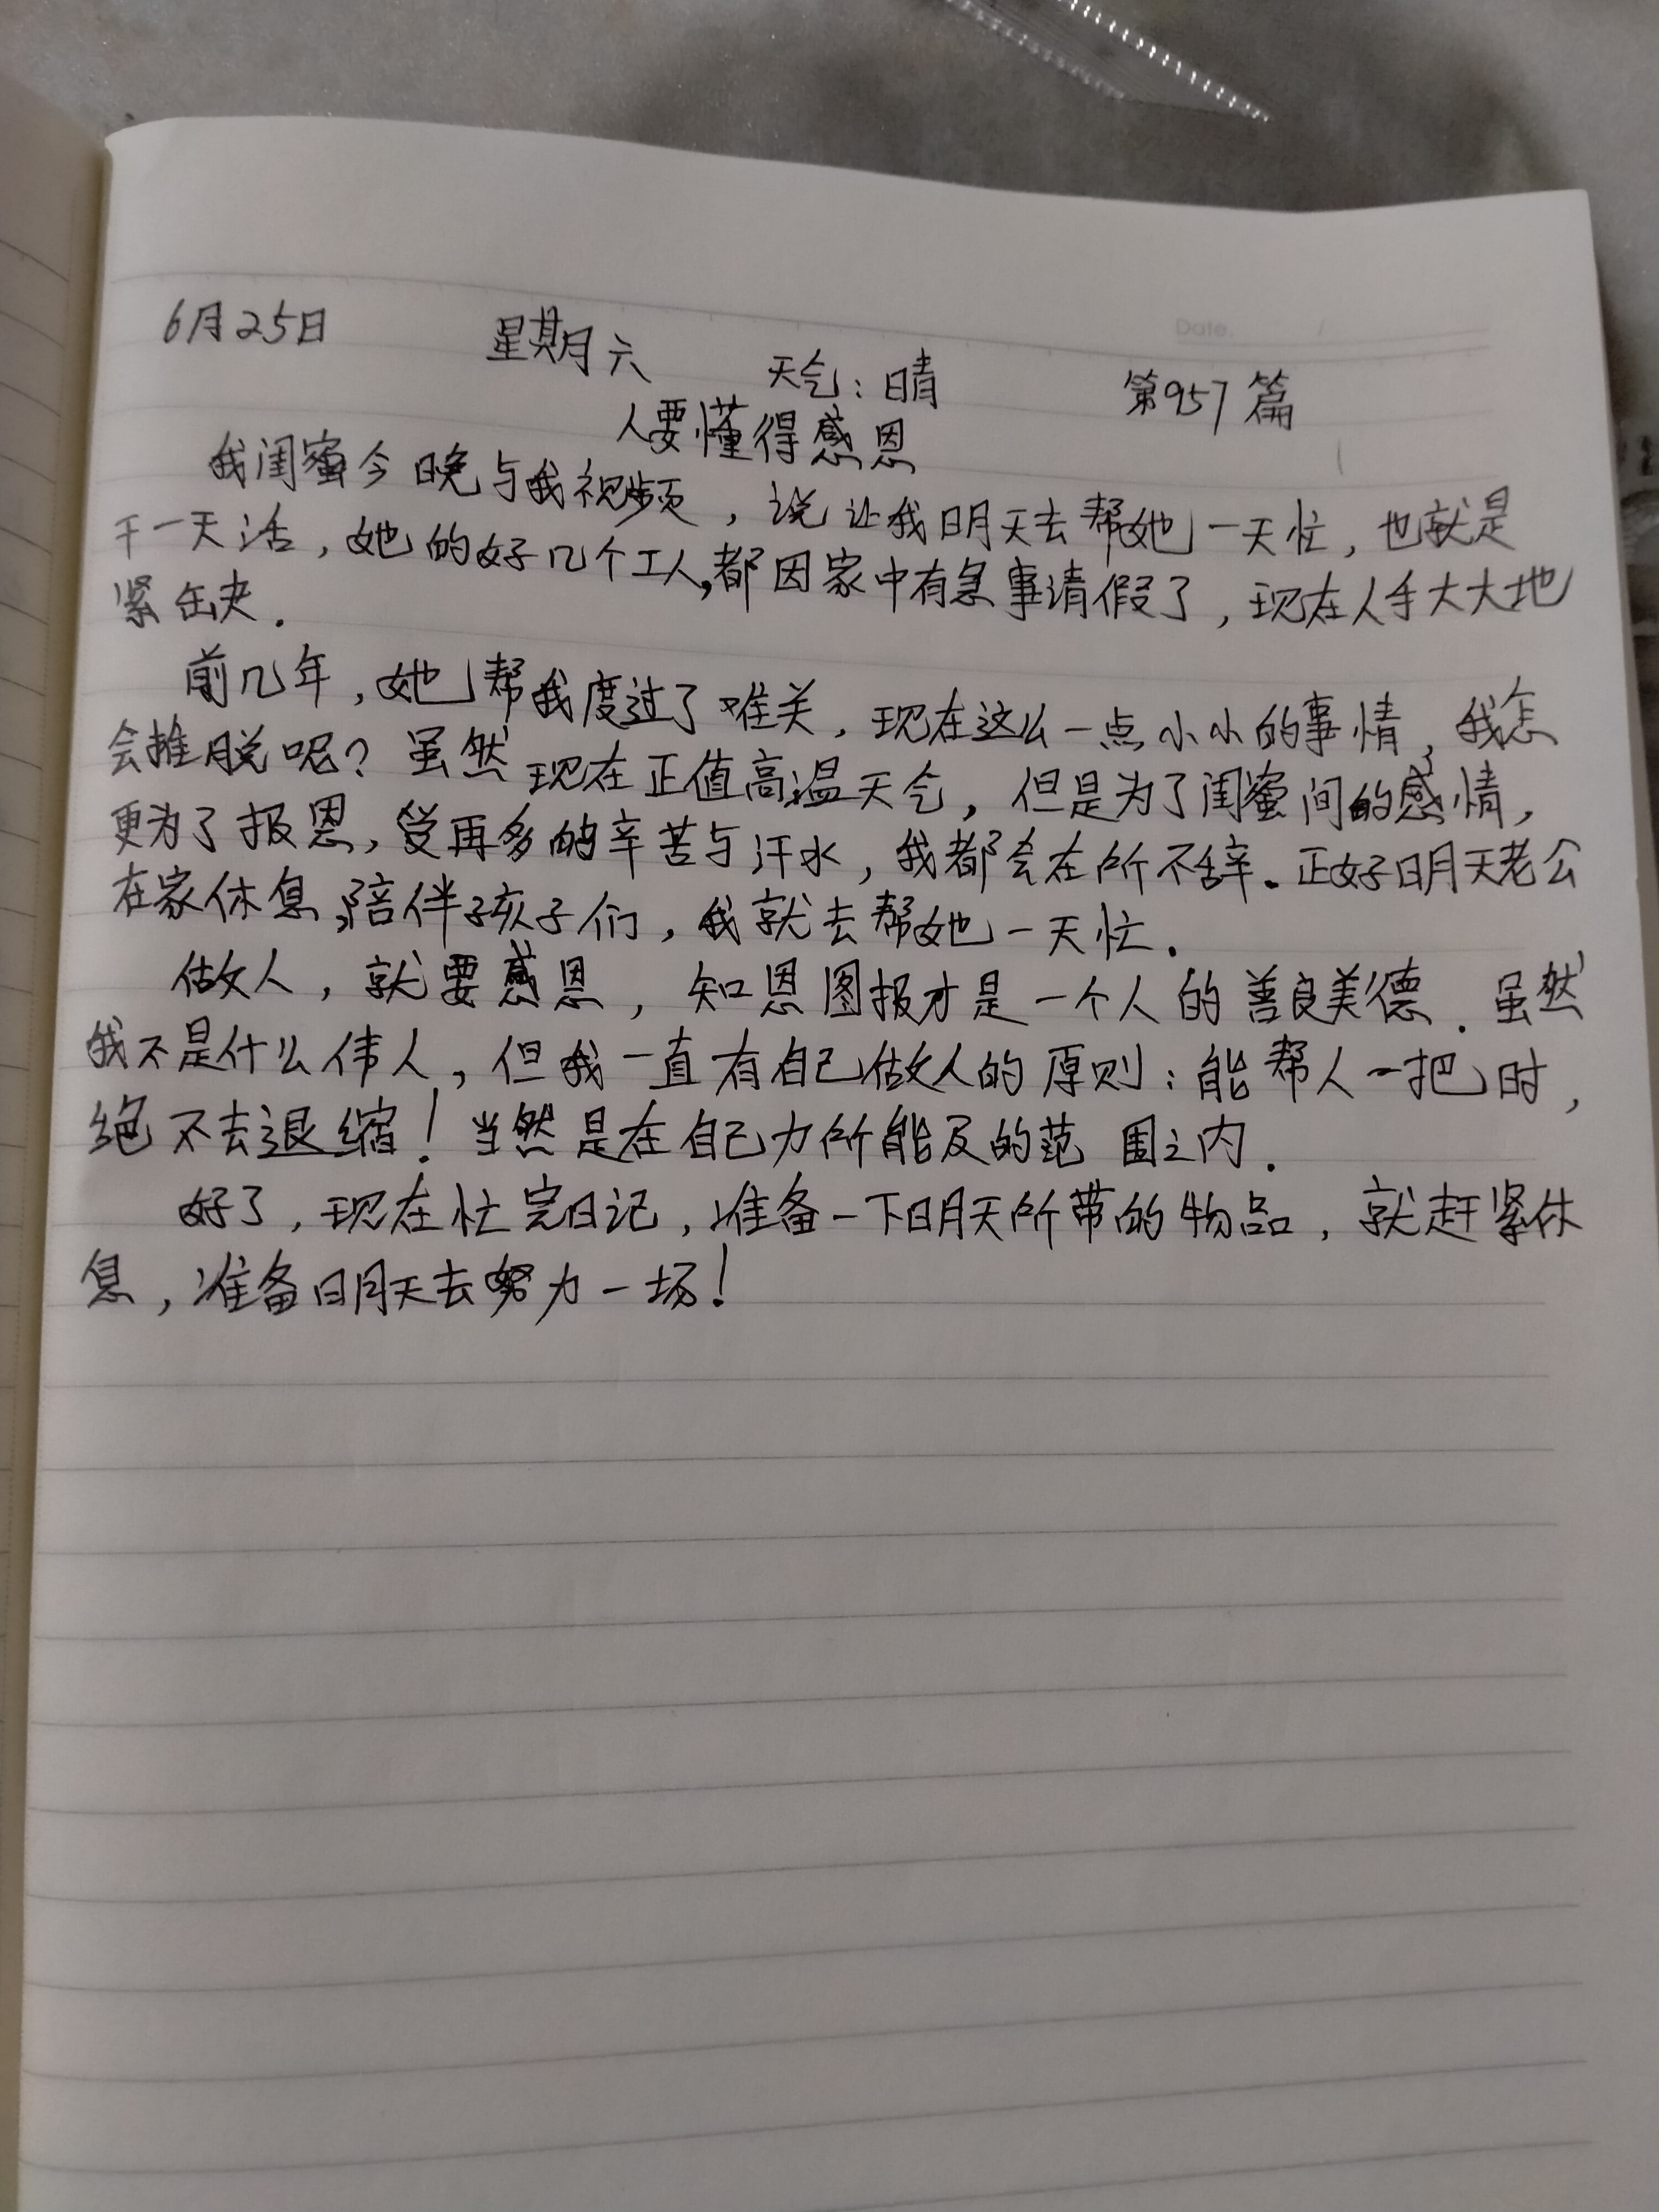 Date.
6月25日 星期六 天气:晴 第957篇
人要懂得感恩
我闺蜜今晚与我视频,说让我明天去帮她一天忙,也就是
干一天活,她的好几个工人,都因家中有急事请假了,现在人手大大地
紧缺.
前几年,她帮我度过了难关,现在这么一点小小的事情,我怎
会推脱呢?虽然现在正值高温天气,但是为了闺蜜间的感情,
更为了报恩,受再多的辛苦与汗水,我都会在所不辞.正好明天老公
在家休息,陪伴孩子们,我就去帮她一天忙.
做人,就要感恩,知恩图报才是一个人的善良美德.虽然
我不是什么伟人,但我一直有自己做人的原则:能帮人一把时,
绝不去退缩!当然是在自己力所能及的范围之内.
好了,现在忙完日记,准备一下明天所带的物品,就赶紧休
息,准备明天去努力一场!